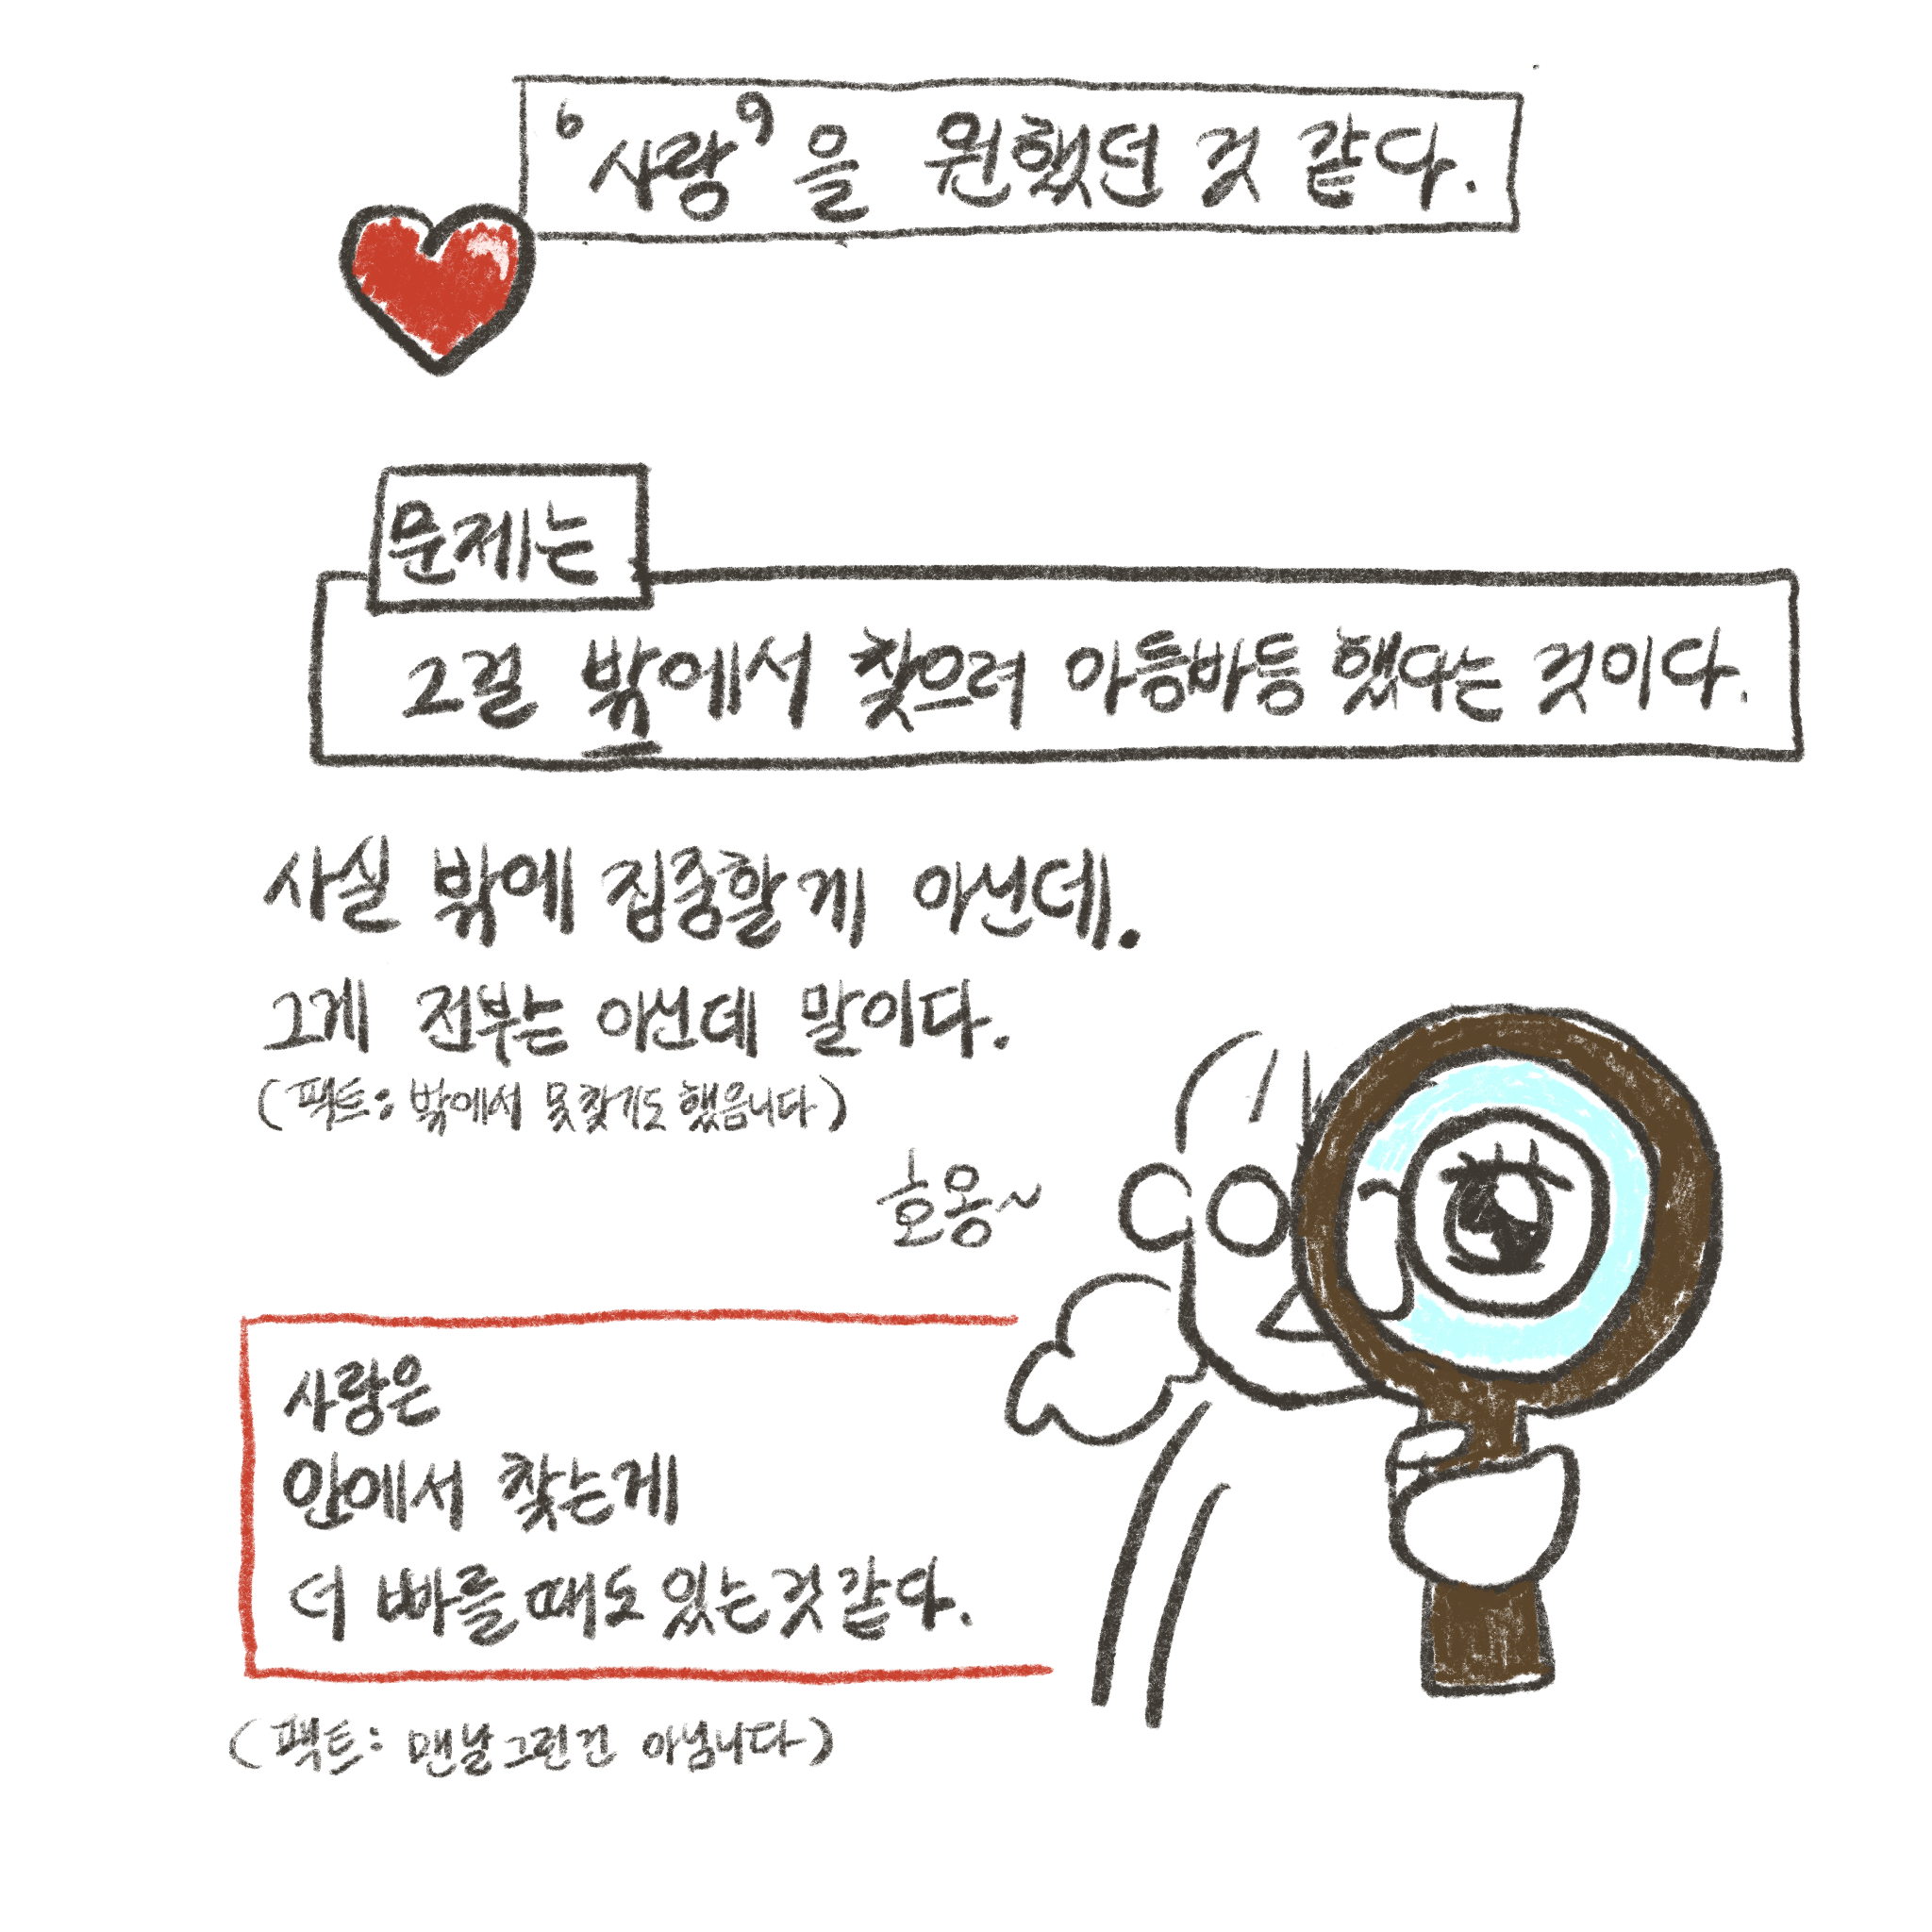 ‘사랑’을 원했던 것 같다.
문제는
그걸 밖에서 찾으려 아등바등 했다는 것이다.
사실 밖에 집중할게 아닌데.
그게 전부는 아닌데 말이다.
(팩트: 밖에서 못찾기도 했음니다)
호옹~
사랑은
안에서 찾는게
더 빠를 때도 있는것 같다.
(팩트: 맨날 그런건 아님니다)